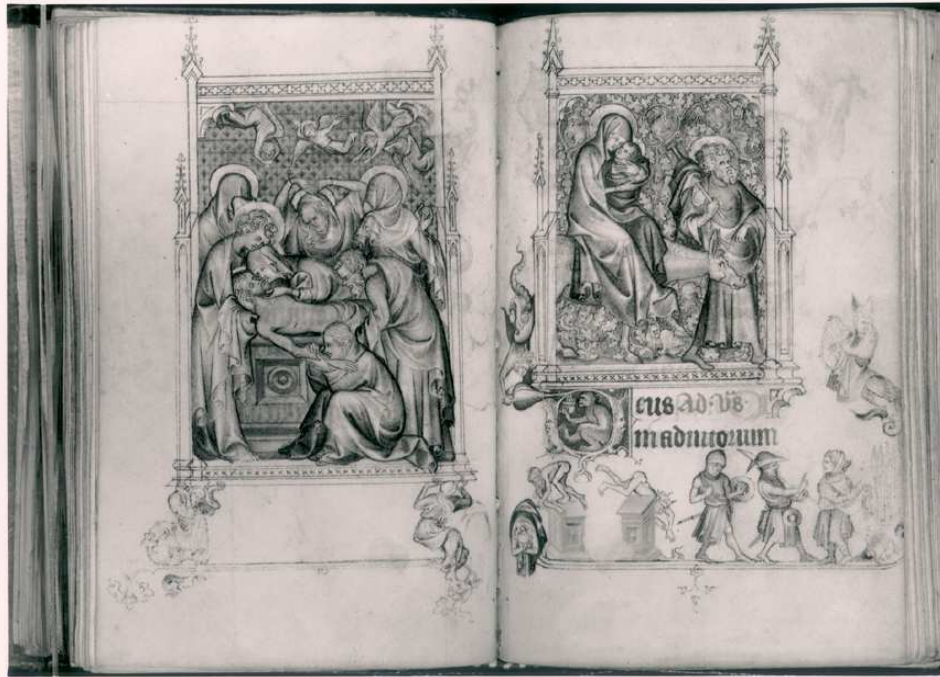 Deus Ad: Vs̄
in adiutorium